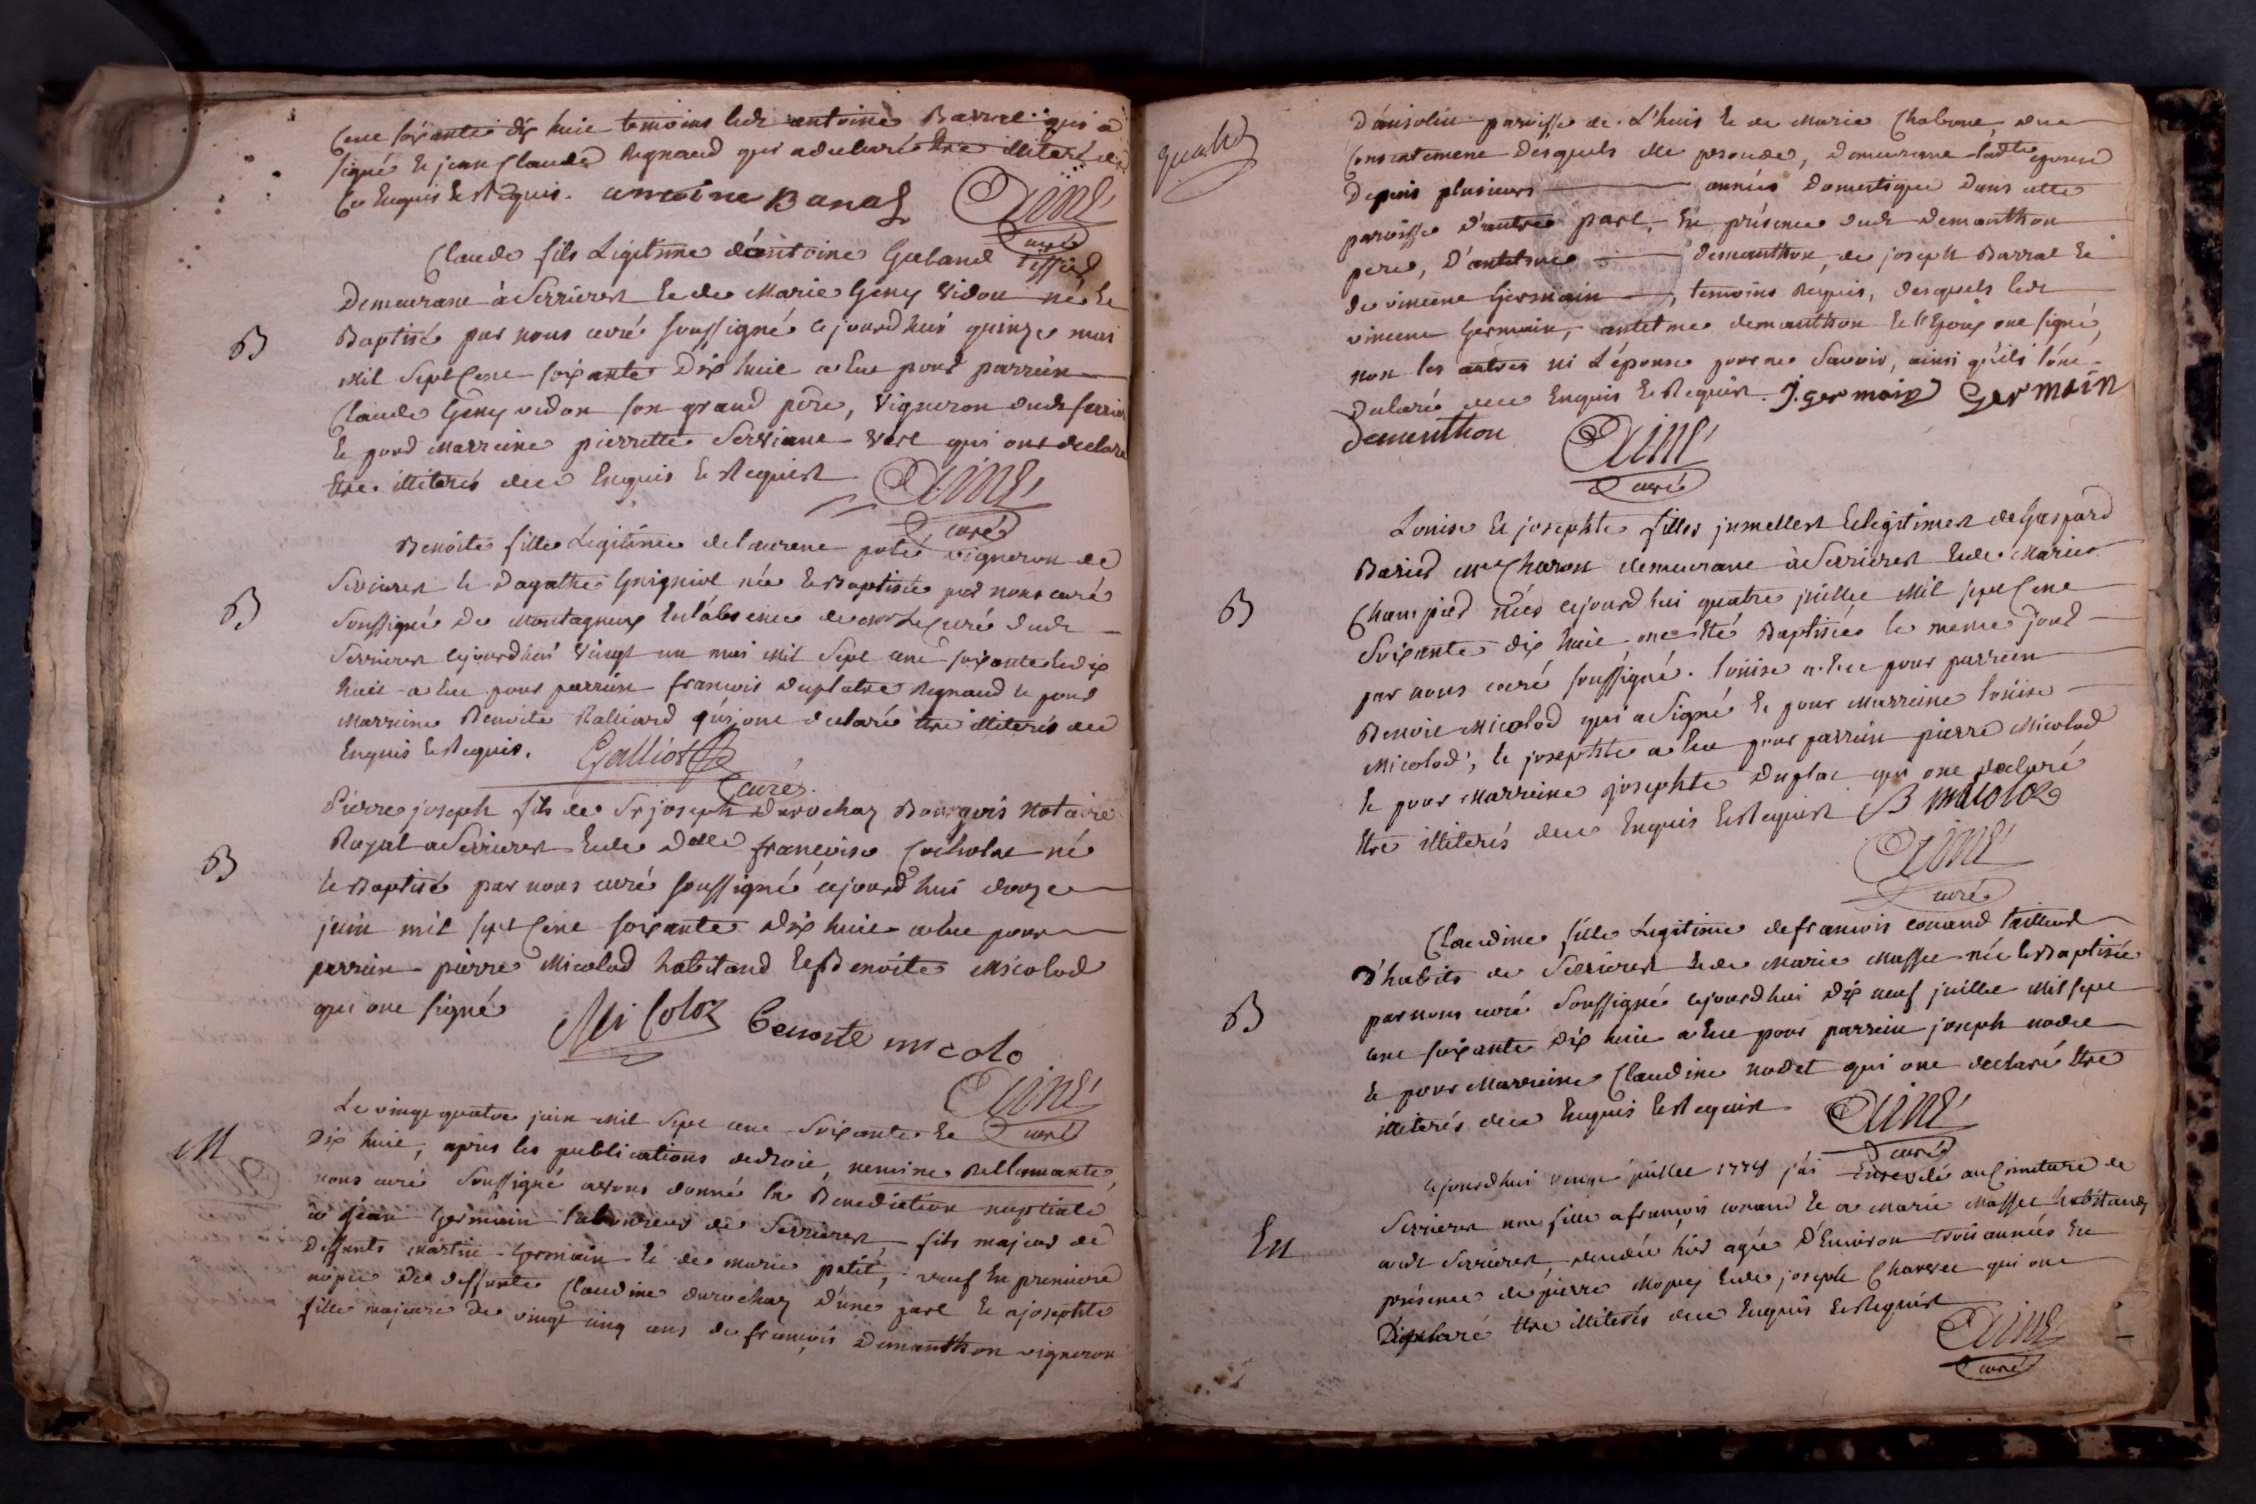 Cent soixante dix huit temoins ledt antoine Barral qui a
signé et jean Claude Regnaud qui a declaré etre illiteré de
ce Enquis et Requis. antoine Baral
Curé
Claude fils Legitime d'antoine Galand Tissier
Demeurant à Serrieres et de Marie Geny Vidon né et
B
Baptisé par nous curé soussigné cejourd'hui quinze mai
Mil Sept Cent soixante Dix huit a Eu pour parrein
Claude Geny vidon son grand pere, Vigneron dudt
et pour Marreine pierrette Vert qui ont declaré
Etre illiterés dece Enquis et Requis
Curé
Benoite fille Legitime de Laurent vigneron de
Serrieres et D'agathe née et Baptisée par nous curé
B
Soussigné De Montagneux En l'absence de Mr Le Curé dudt
Serrieres cejourd'hui Vingt un mai Mil Sept cent soixante et dix
huit a Eu pour parrein francois Duplatre Regnaud et pour
Marreine Benoite Ralliard qui ont declaré etre illiterés dece
Enquis et Requis. Galliot
Curé
Pierre joseph fils de Sr joseph Durochay Bourgois Notaire
Royal a Serrieres et de Delle francoise né
B
et Baptisé par nous curé soussigné cejourd'hui douze
juin mil sept Cent soixante Dix huit a Eu pour
parrein pierre Micolod et Benoite Micolod
qui ont signé Micoloz Benoite micolo
Curé
Le vingt quatre juin Mil Sept cent Soixante et
M
Dix huit, apres les publications de droit, nemine Reclamante,
nous curé Soussigné avons donné la Benediction nuptiale
a jean Germain laboureur de Serrieres, fils majeur de
Deffunts Martin Germain et de Marie petit, veuf En premiere
nopce de deffunte Claudine durochay D'une part et a josephte
fille majeure De vingt cinq ans de françois Demanthon vigneron
quatre
D'ansolin paroisse de L'huis et de Marie Chabone, du
Consentement Desquels elle procede, Demeurant ladte epouse
Depuis plusieurs années Domestique Dans cette
paroisse D'autre part, En présence dudt Demanthon
pere, D'antelme demanthon, de joseph Barral et
de vincent Germain, temoins Requis, desquels ledt
vincent Germain, antelme demanthon et l'Epoux ont signé,
non les autres ni L'épouse pour ne Savoir, ainsi qu'ils l'ont
Declaré dece Enquis et Requis. J. germain Germain
dementhon
Curé
Louise et josephte filles jumelles et legitimes de Gaspard
Mtre Charon demeurant à Serrieres et de Marie
B
Champied nées cejourd'hui quatre juillet Mil sept Cent
Soixante dix huit ont été Baptisées le meme jour
par nous curé soussigné. louise a Eu pour parrein
Benoit Micolod qui a Signé et pour Marreine louise
Micolod, et josephte a Eu pour parrein pierre Micolod
et pour Marreine josephte Duplat qui ont declaré
Etre illiterés dece Enquis et Requis B micoloz
curé
Claudine fille Legitime de francois conand tailleur
D'habits de Serrieres et de Marie Masset née et Baptisée
B
par nous curé Soussigné cejourd'hui Dix neuf juillet Mil sept
cent soixante Dix huit a Eu pour parrein joseph nodet
et pour Marreine Claudine nodet qui ont declaré Etre
illiterés dece Enquis et Requis
curé
Cejourd'hui vingt juillet 1778 j'ai Enseveli au Cimetiere de
Serrieres une fille a françois conand et a Marie Masset habitants
En
audt Serrieres, decedée hier agée D'Environ trois années En
présence de pierre et de joseph Charvet qui ont
Declaré etre illiterés dece Enquis et Requis
curé